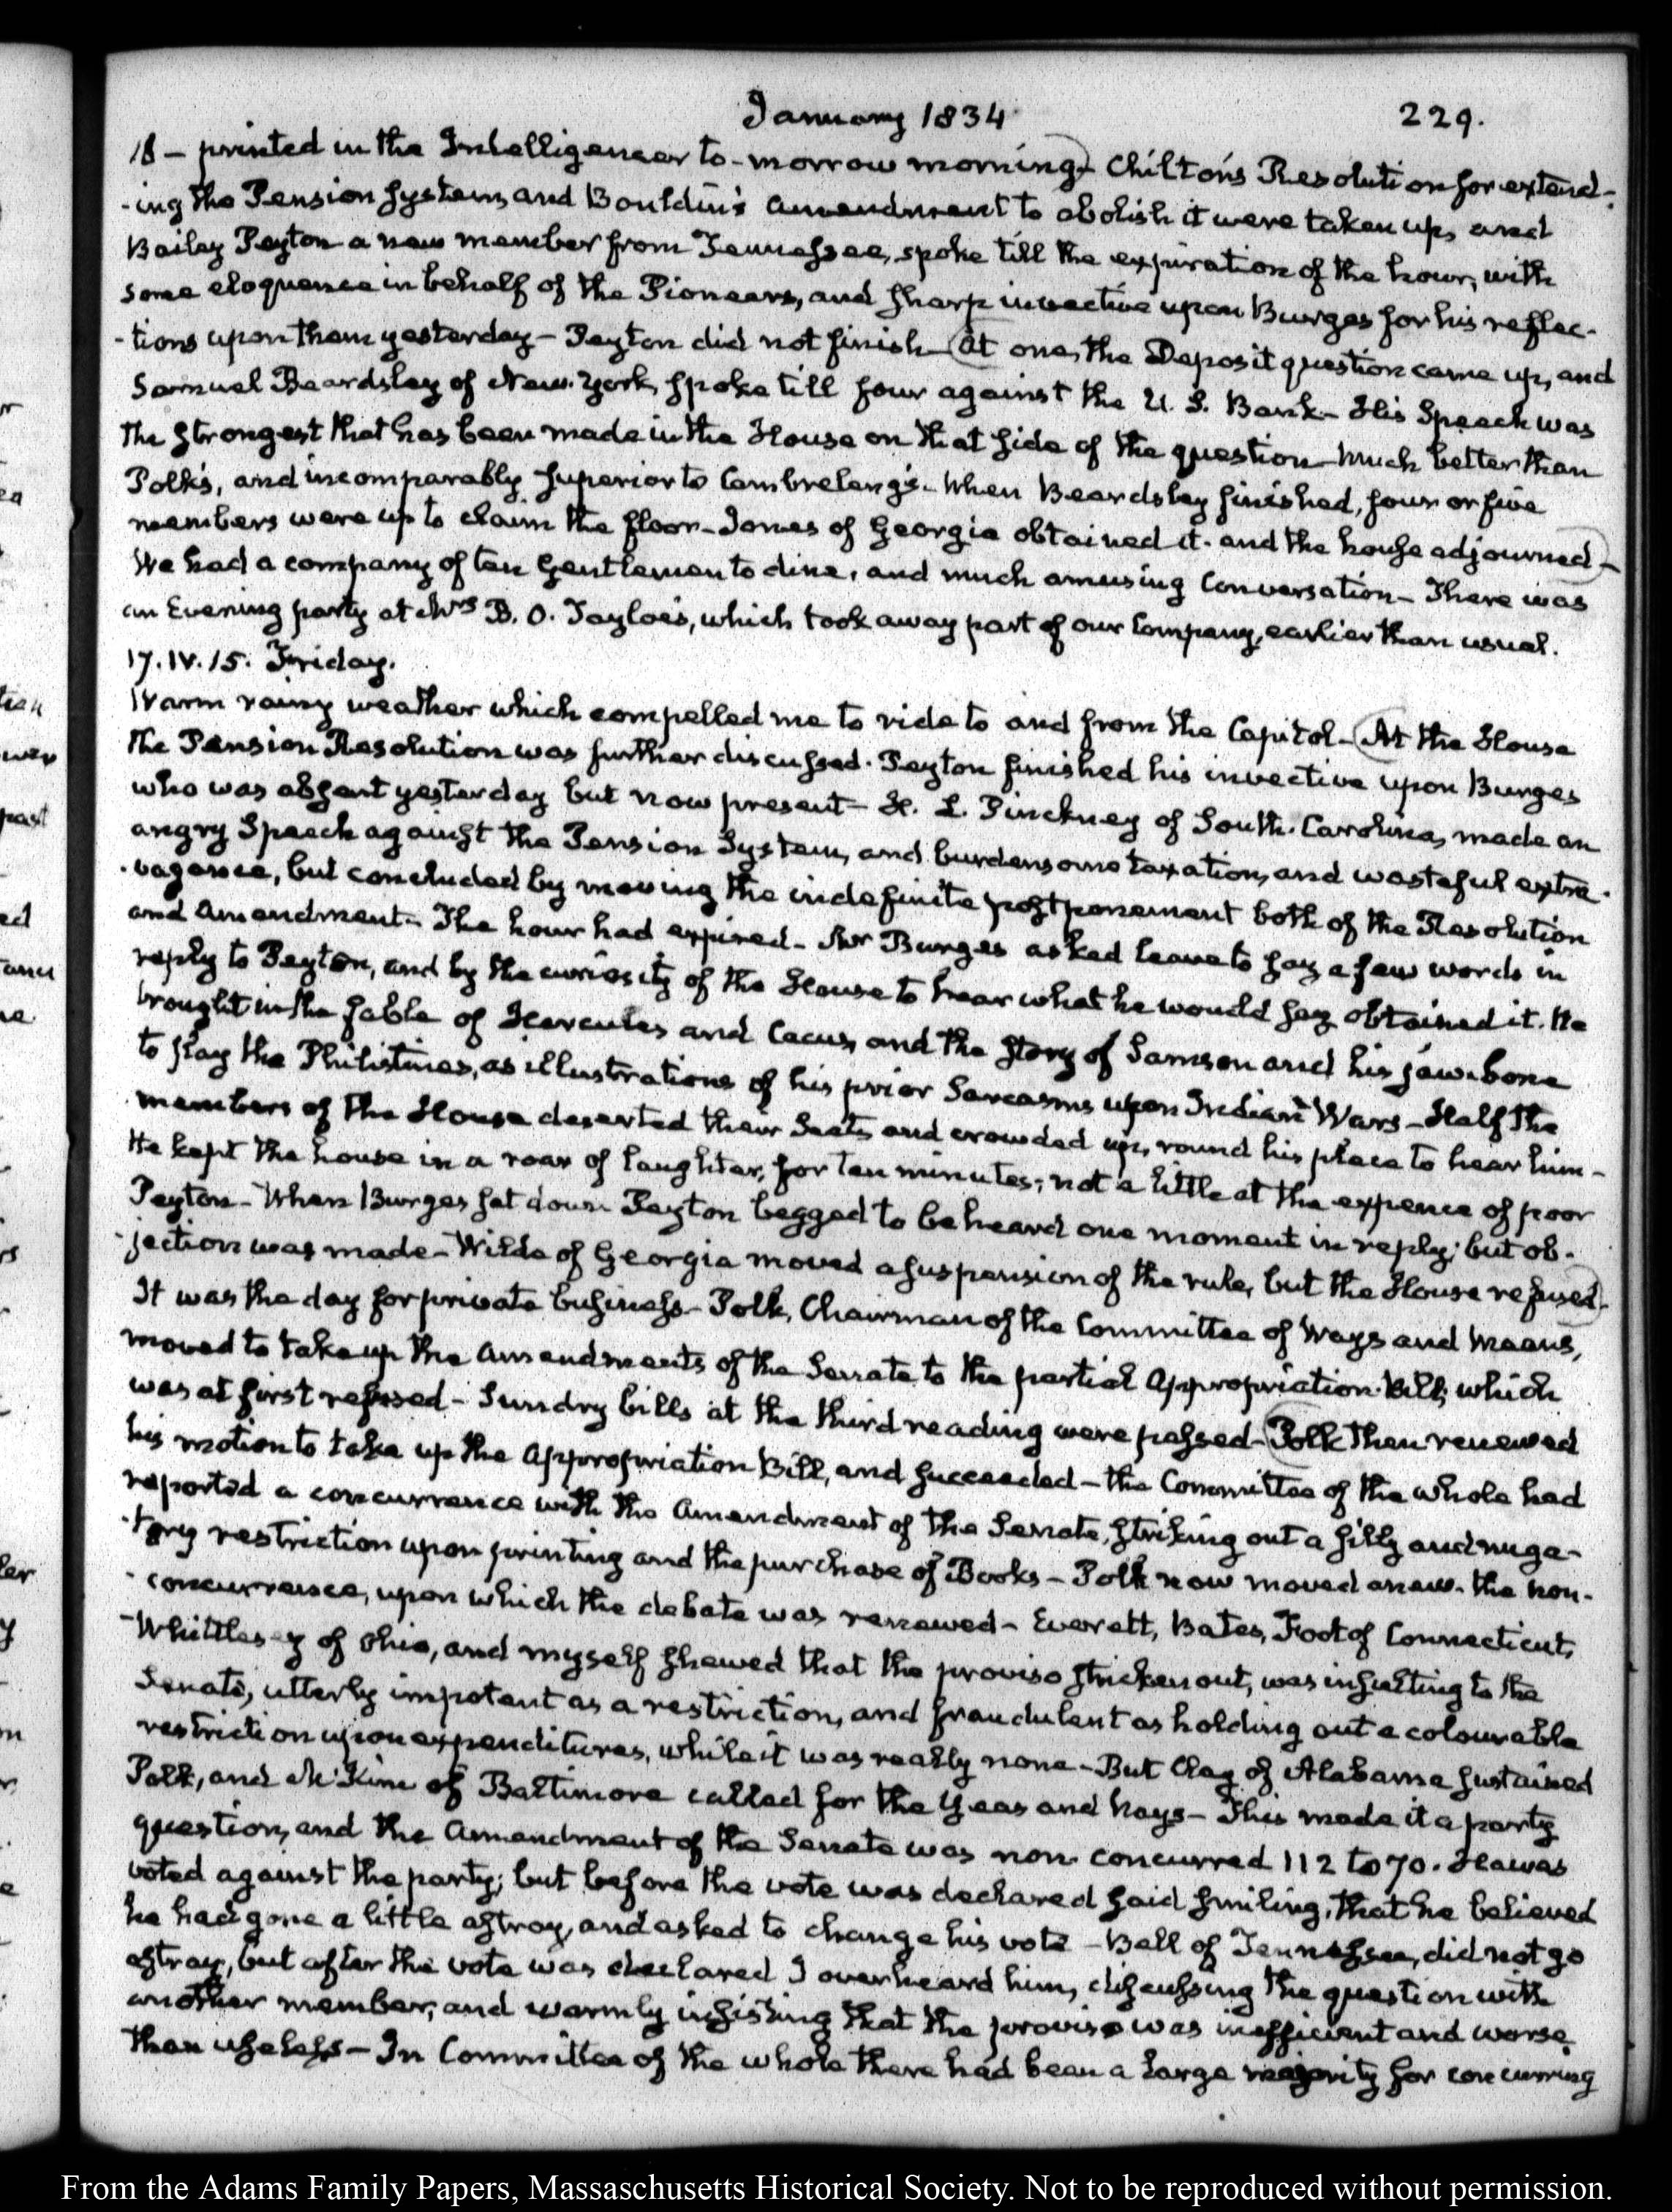 January 1834
229.
18 — printed in the Intelligencer to-morrow morning) — Chilton's Resolution for extend-
-ing the Pension System, and Bouldin's amendment to abolish it were taken up, and
Bailey Peyton a new member from Tennessee, spoke till the expiration of the hour, with
some eloquence in behalf of the Pioneers, and sharp invective upon Burges for his reflec-
-tions upon them yesterday — Peyton did not finish — (At one, the Deposit question came up, and
Samuel Beardsley of New-York, spoke till four against the U. S. Bank — His Speech was
the strongest that has been made in the House on that side of the question — Much better than
Polk's, and incomparably superior to Cambreleng's. When Beardsley finished, four or five
members were up to claim the floor — Jones of Georgia obtained it. and the house adjourned) —
We had a company of ten Gentlemen to dine, and much amusing Conversation — There was
an Evening party at Mrs B. O. Tayloe's, which took away part of our Company, earlier than usual.
17. IV. 15. Friday.
Warm rainy weather which compelled me to ride to and from the Capitol — (At the House
the Pension Resolution was further discussed. Peyton finished his invective upon Burges
who was absent yesterday but now present — H. L. Pinckney of South-Carolina, made an
angry Speech against the Pension System, and burdensome taxation, and wasteful extra-
-vagance, but concluded by moving the indefinite postponement both of the Resolution
and Amendment — The hour had expired — Mr Burges asked leave to say a few words in
reply to Peyton, and by the curiosity of the House to hear what he would say obtained it. He
brought in the fable of Hercules and Cacus, and the story of Samson and his jaw-bone
to slay the Philistines, as illustrations of his prior Sarcasms upon Indian Wars — Half the
members of the House deserted their Seats and crowded up, round his place to hear him —
He kept the house in a roar of laughter, for ten minutes, not a little at the expence of poor
Peyton — When Burges sat down Peyton begged to be heard one moment in reply; but ob-
-jection was made — Wilde of Georgia moved a suspension of the rule, but the House refused)
It was the day for private business — Polk, Chairman of the Committee of Ways and Means,
moved to take up the Amendments of the Senate to the partial Appropriation Bill, which
was at first refused — Sundry bills at the third reading were passed — (Polk then renewed
his motion to take up the Appropriation Bill, and succeeded — the Committee of the whole had
reported a concurrence with the Amendment of the Senate, striking out a silly and nuga-
-tory restriction upon printing and the purchase of Books — Polk now moved anew. the non-
-concurrence, upon which the debate was renewed — Everett, Bates, Foot of Connecticut,
Whittlesey of Ohio, and myself shewed that the proviso stricken out, was insulting to the
Senate, utterly impotent as a restriction, and fraudulent as holding out a colourable
restriction upon expenditures, while it was really none — But Clay of Alabama sustained
Polk, and McKim of Baltimore called for the Yeas and Nays — This made it a party
question, and the Amendment of the Senate was non-concurred 112 to 70. Hawes
voted against the party; but before the vote was declared said smiling, that he believed
he had gone a little astray, and asked to change his vote — Bell of Tennessee, did not go
astray, but after the vote was declared I overheard him, discussing the question with
another member, and warmly insisting that the proviso was inefficient and worse
than useless — In Committee of the whole there had been a large majority for concurring
From the Adams Family Papers, Massachusetts Historical Society. Not to be reproduced without permission.